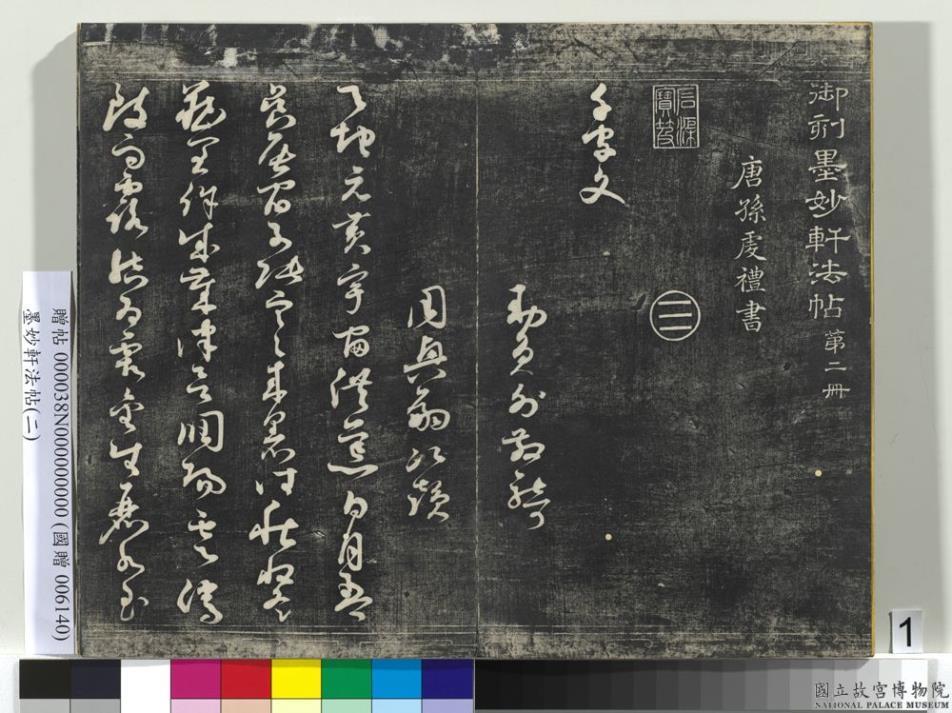 御刻墨妙軒法帖 第二冊
唐孫虔禮書
石渠寶笈
千字文
勅員外散騎
周興嗣次韻
天地元黃宇宙洪荒日月盈
昃辰宿列張寒來暑往秋收冬
藏閏餘成歲律呂調陽雲騰
致雨露結為霜金生麗水玉
贈帖 000038N000000000 (國贈 006140)
墨妙軒法帖(二)
1
國立故宮博物院
NATIONAL PALACE MUSEUM